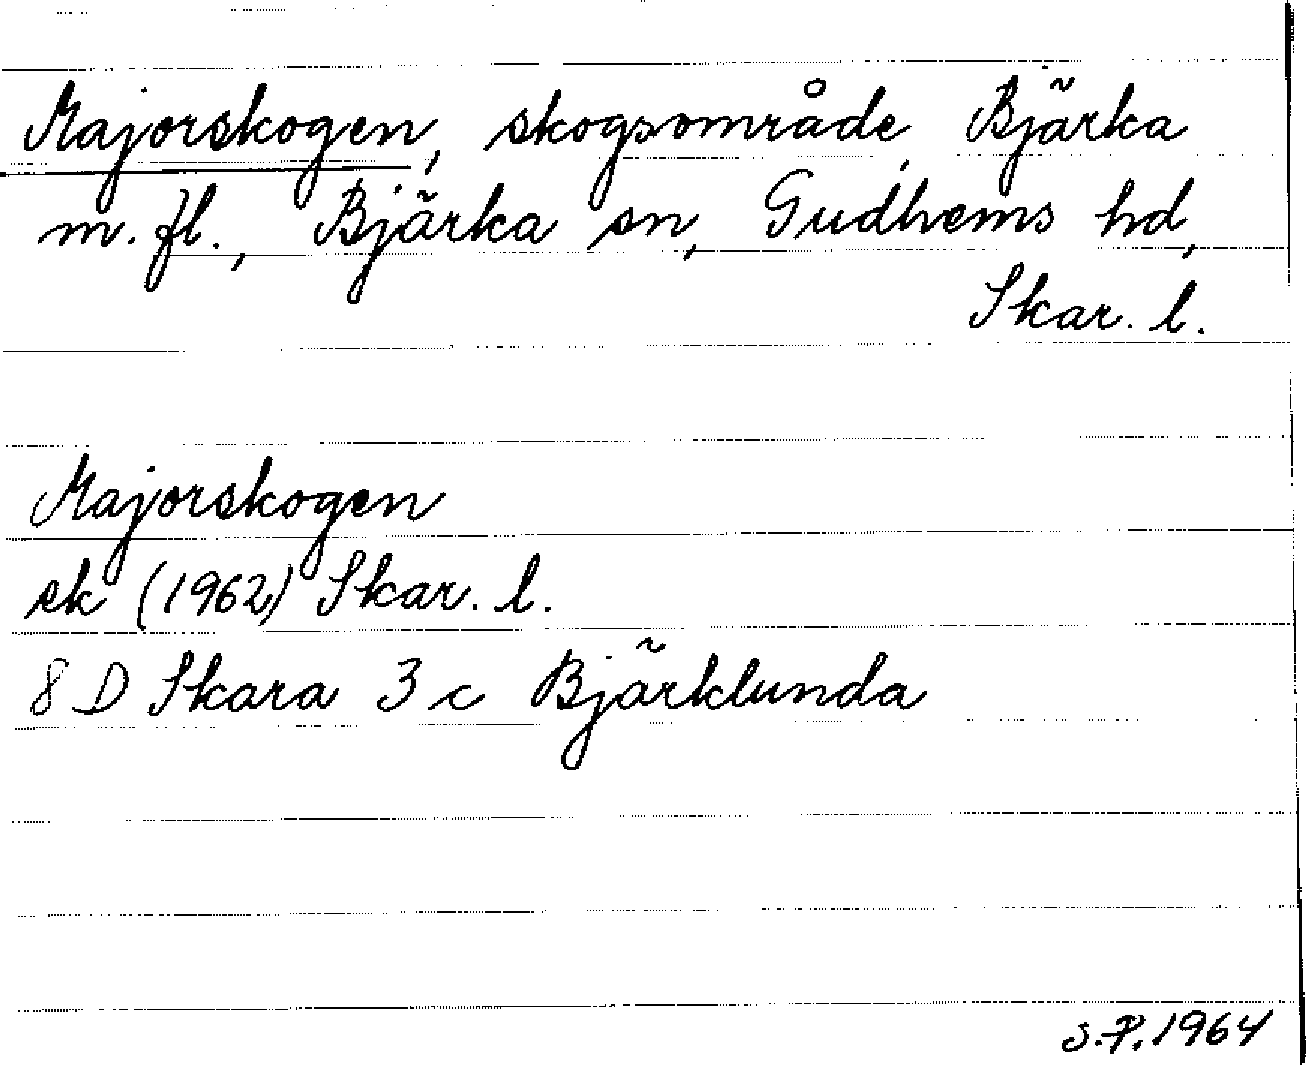 Majorskogen, skogsområde, Bjärka
m. fl., Bjärka sn, Gudhems hd,
Skar. l.
Majorskogen
ek (1962) Skar. l.
8 D Skara 3 c Bjärklunda
S.P. 1964